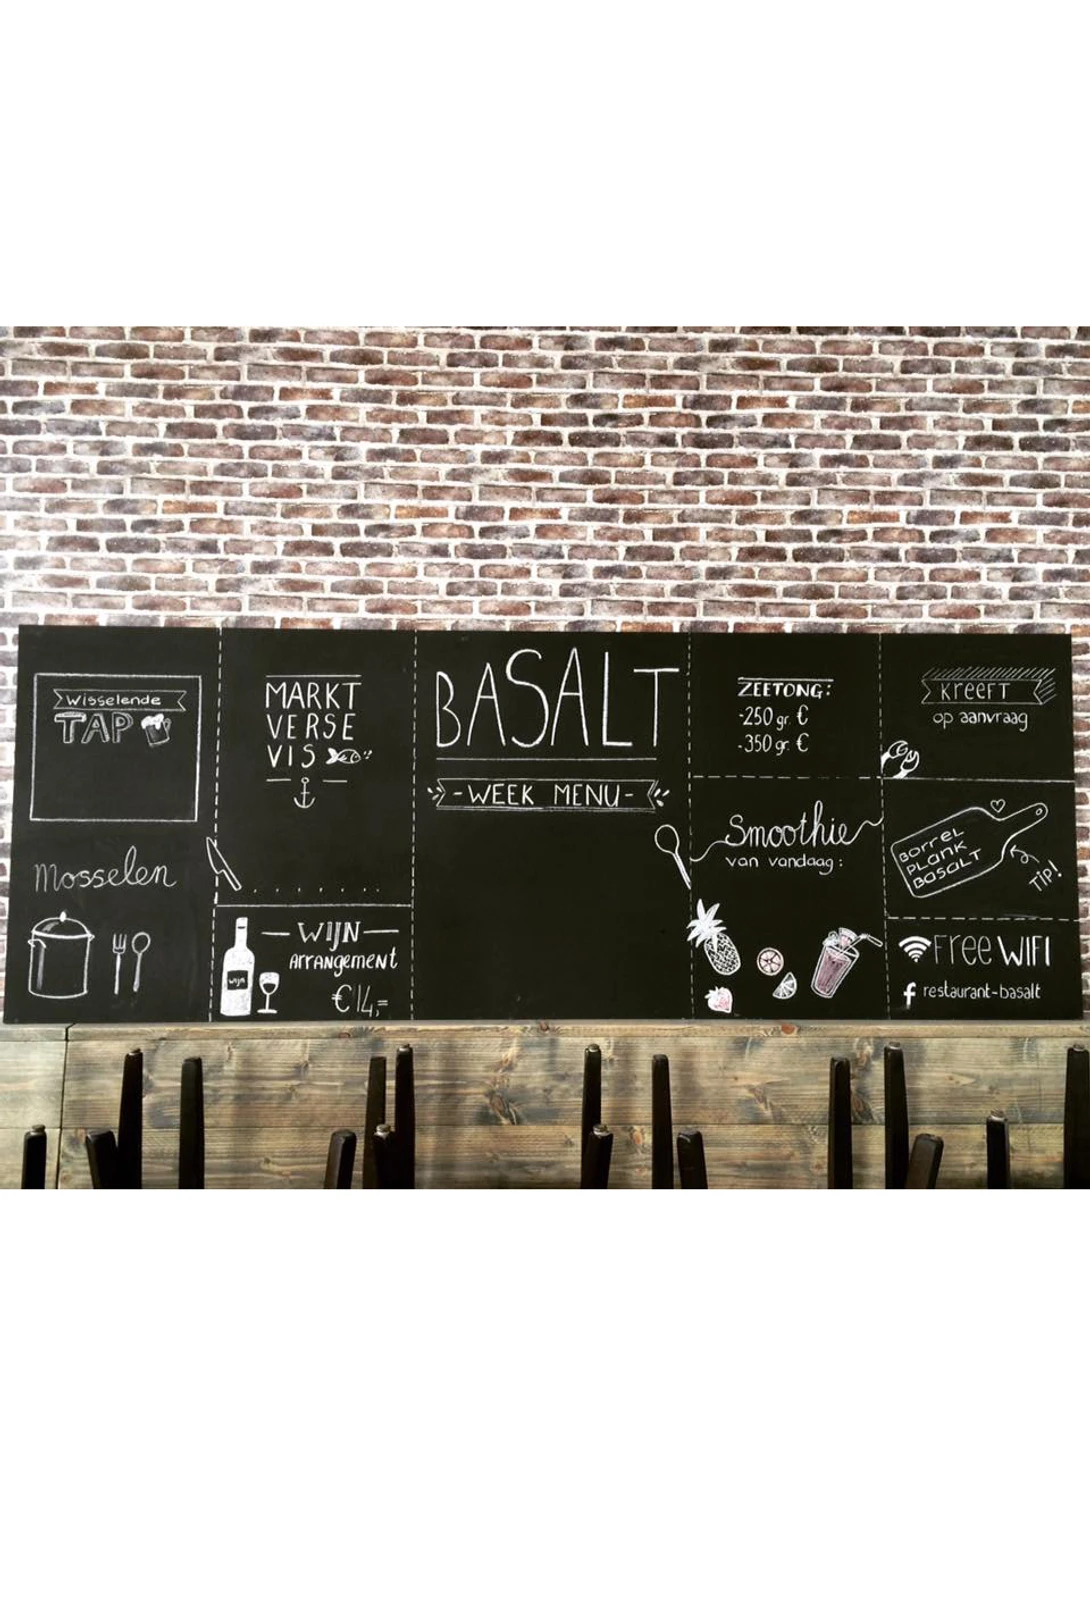 Wisselende
TAP
Mosselen
MARKT
VERSE
VIS
WIJN
ARRANGEMENT
€14,=
WIJN
BASALT
-WEEK MENU-
ZEETONG:
-250 gr. €
-350 gr. €
Smoothie
van vandaag:
KREEFT
op aanvraag
BORREL
PLANK
BASALT
TIP!
Free WIFI
f restaurant-basalt